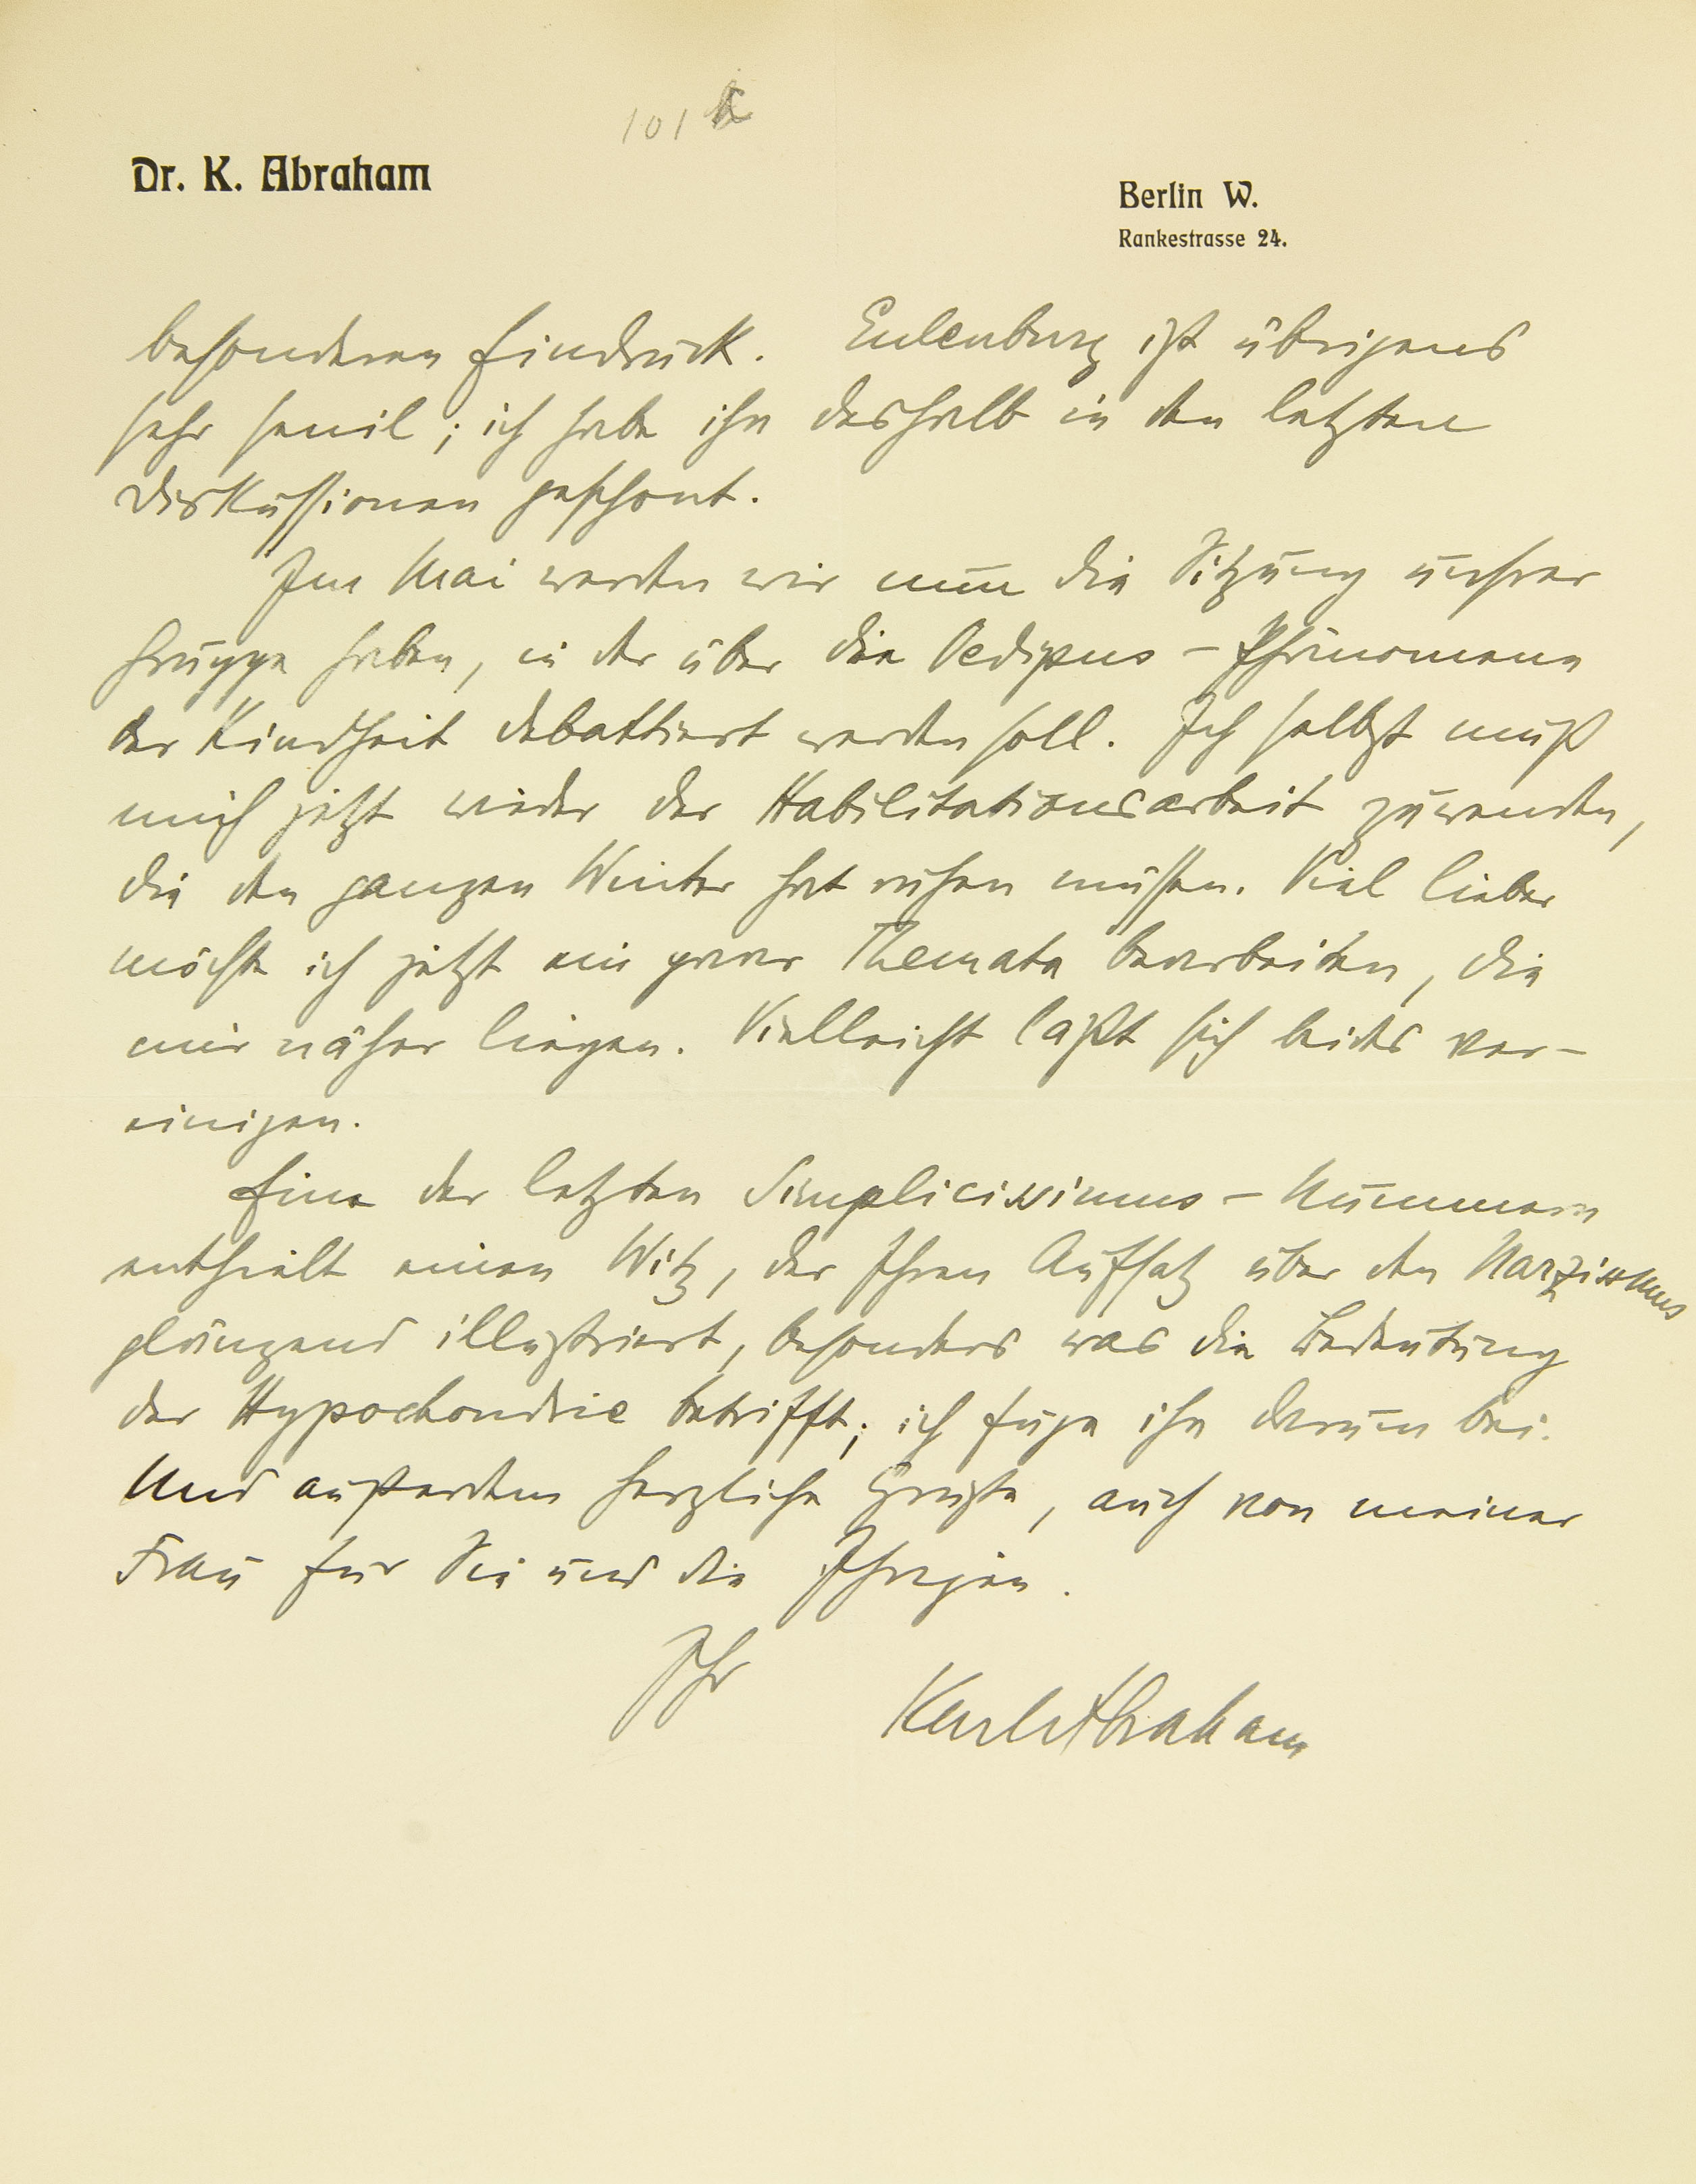 101
Dr. K. Abraham
Berlin W.
Rankestrasse 24.
besonderen Eindruck. Eulenburg ist übrigens
sehr senil; ich habe ihn deshalb in den letzten
Diskussionen geschont.
Im Mai werden wir nun die Sitzung unsrer
Gruppe haben, in der über die Oedipus-Phänomene
der Kindheit debattiert werden soll. Ich selbst muß
mich jetzt wieder der Habilitationsarbeit zuwenden,
die den ganzen Winter hat ruhen müssen. Viel lieber
möchte ich jetzt ein paar Themata bearbeiten, die
mir näher liegen. Vielleicht läßt sich beides ver-
einigen.
Eine der letzten Simplicissimus-Nummern
enthielt einen Witz, der Ihren Aufsatz über den Narzissmus
glänzend illustriert, besonders was die Bedeutung
der Hypochondrie betrifft; ich füge ihn darum bei.
Und außerdem herzliche Grüße, auch von meiner
Frau für Sie und die Ihrigen.
Ihr
Karl Abraham